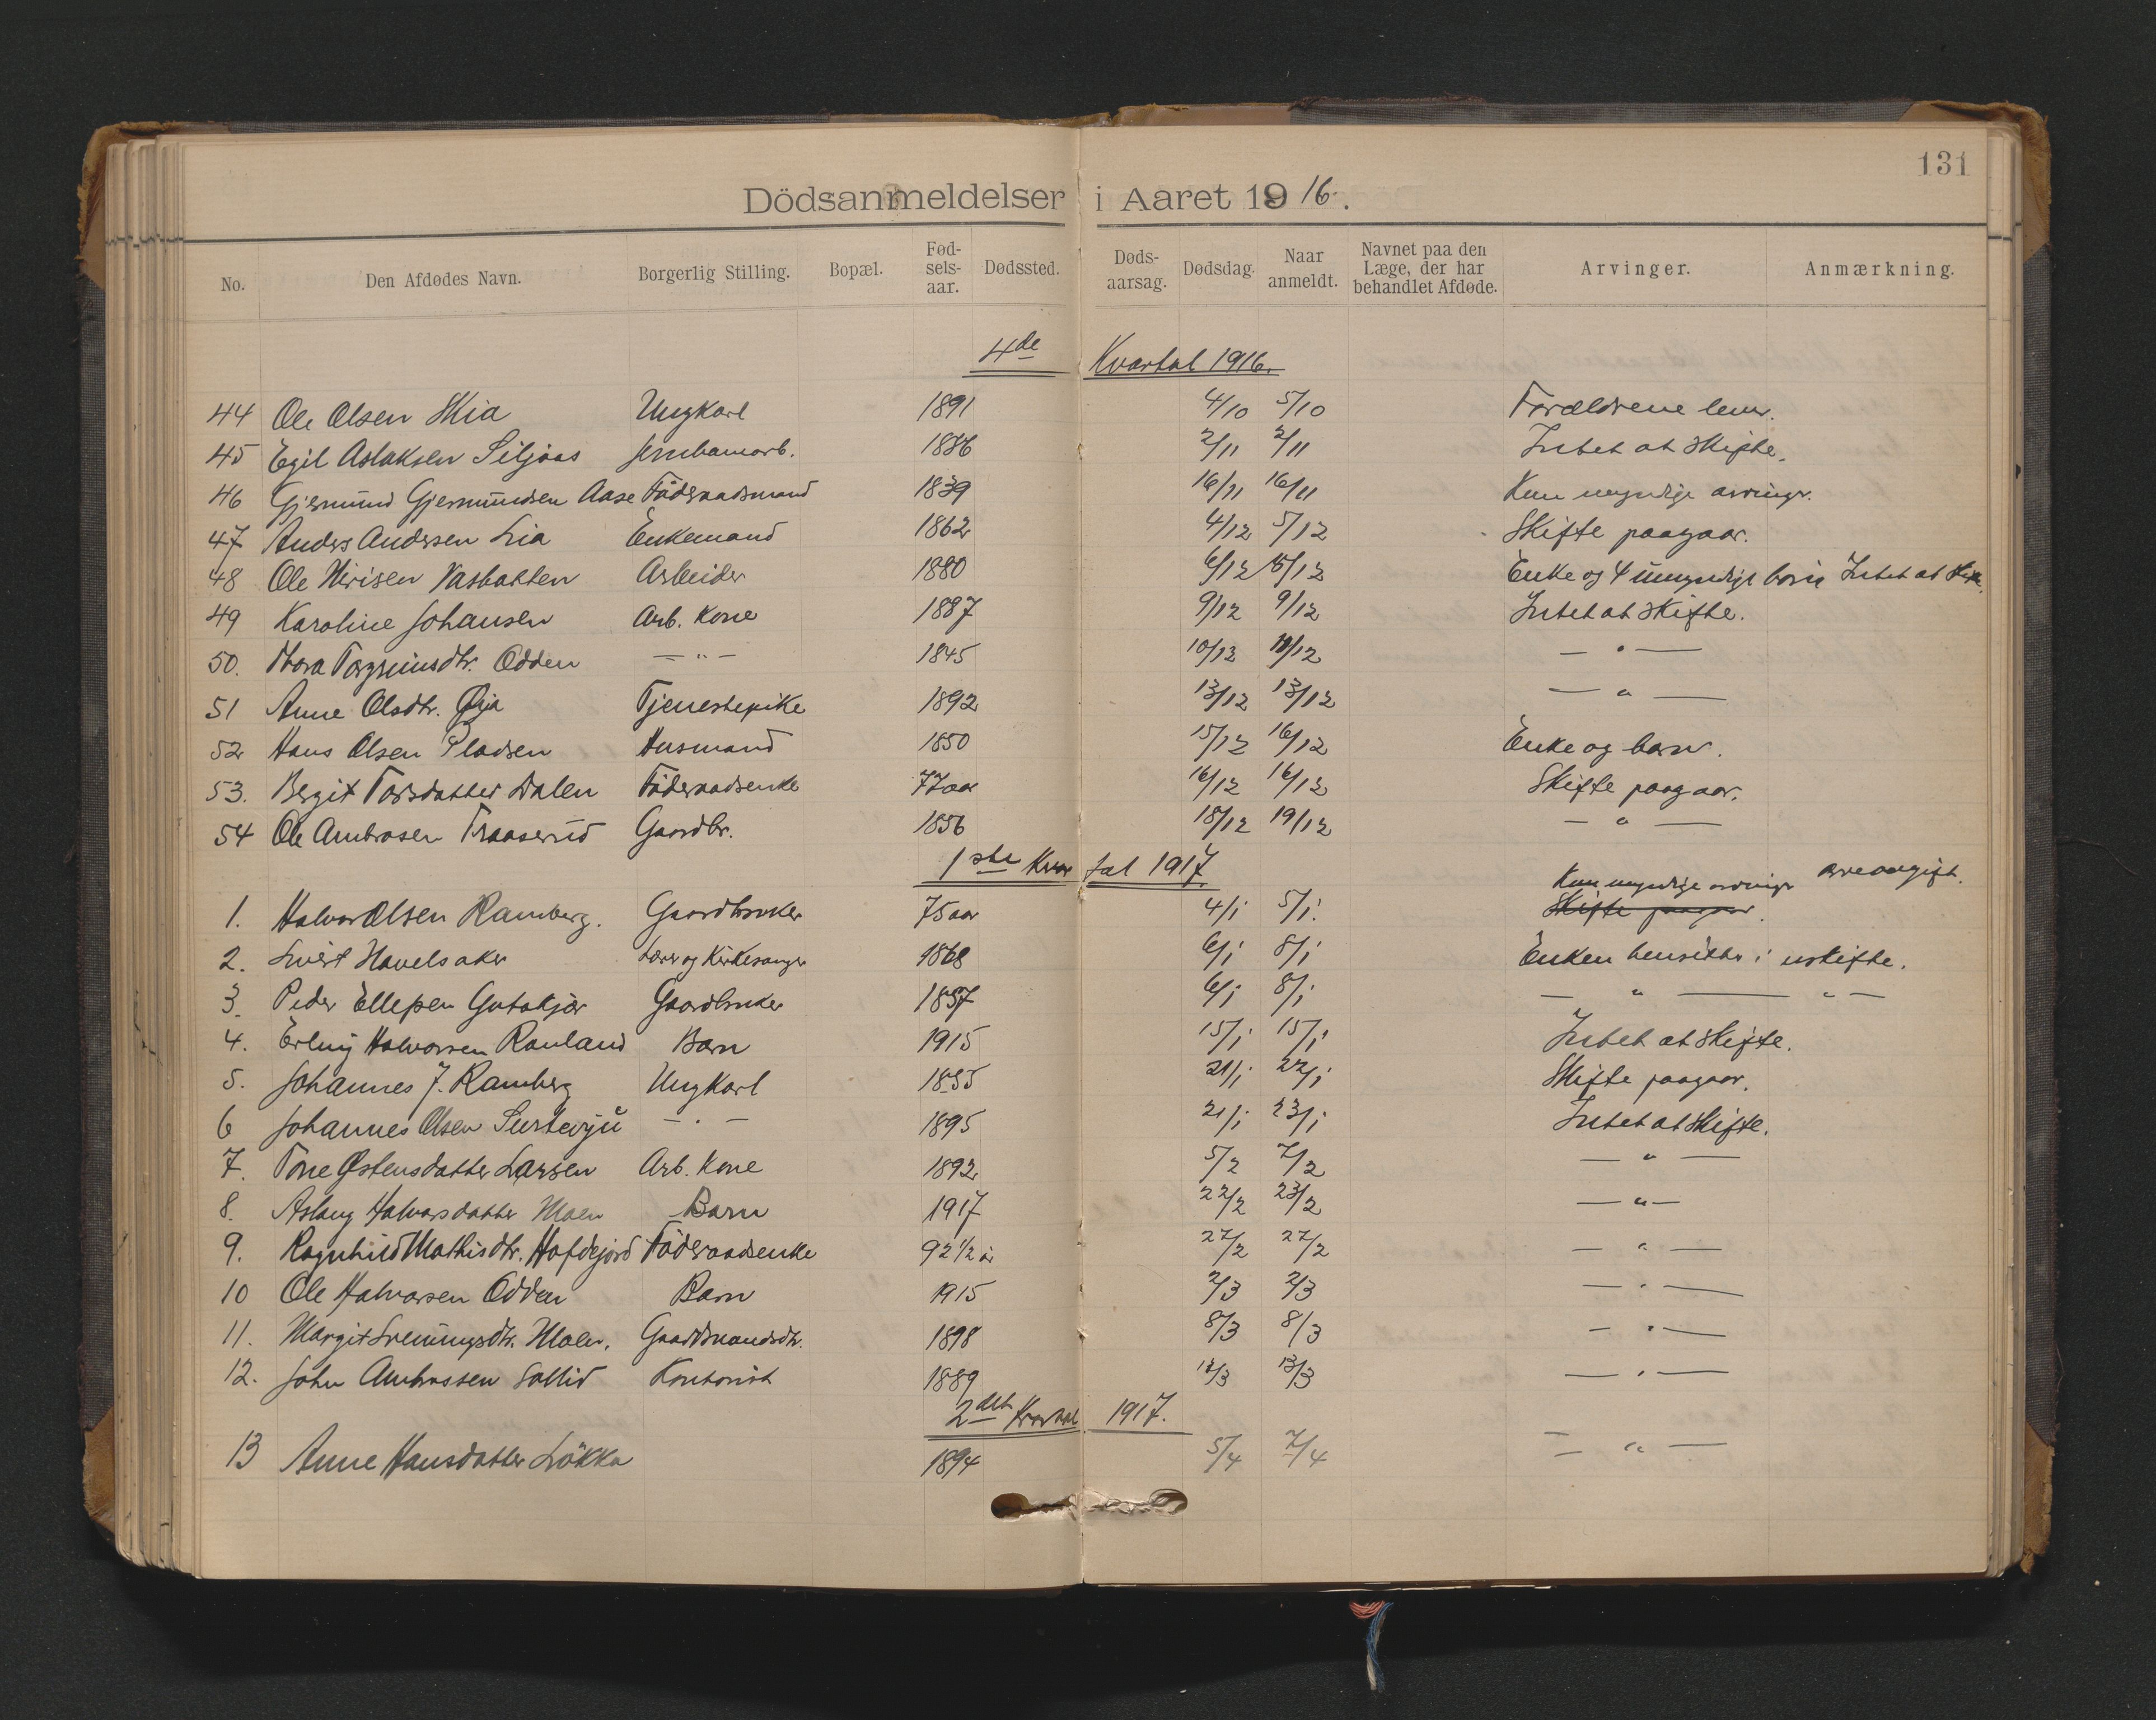 131
Dödsanmeldelser i Aaret 1916.
No. Den Afdødes Navn. Borgerlig Stilling. Bopæl. Fød-sels-aar. Dødssted. Døds-aarsag. Dødsdag. Naar anmeldt. Navnet paa den Læge, der har behandlet Afdøde. Arvinger. Anmærkning.
4de Kvartal 1916.
44 Ole Olsen Ungkarl 1891 4/10 5/10 Forældrene lever.
45 Egil Aslaksen Siljaas 1886 2/11 2/11 Intet at skifte.
46 Gjermund Gjermundsen Aase Föderaadsmand 1839 16/11 16/11 Kun myndige arvinger.
47 Anders Andersen Lia Enkemand 1862 4/12 5/12 Skifte paagaar.
48 Ole Arbeider 1880 6/12 Enke og 4 umyndige børn Intet at
49 Karoline Johansen Arb. kone 1887 9/12 9/12 Intet at skifte.
50. Thora Torgrimsdtr. Odden — " — 1845 10/12 11/12 — " —
51 Anne Olsdtr. Øya Tjenestepike 1892 13/12 13/12 — " —
52 Hans Olsen Pladsen Husmand 1850 15/12 16/12 Enke og barn.
53. Bergit Torsdatter Dalen Föderaadsenke 77 aar 16/12 16/12 Skifte paagaar.
54 Ole Ambrosen Traaserud Gaardbr. 1856 18/12 19/12 — " —
1ste Kvartal 1917.
Kun myndige arvinger arveavgift.
1. Halvor Olsen Ramberg. Gaardbruker 75 aar 4/1 5/1. Skifte paagaar.
2. Sivert Havelsaker Lærer og Kirkesanger 1868 6/1 8/1 Enken hensitter i uskifte.
3. Peder Ellefsen Gaardbruker 1857 6/1 8/1 — " — " —
4. Erling Halvorsen Rauland Barn 1915 15/1 15/1 Intet at skifte.
5. Johannes J. Ramberg Ungkarl 21/1 22/1 Skifte paagaar.
6 Johannes Olsen — " — 1895 21/1 23/1 Intet at skifte.
7. Tone Østensdatter Larsen Arb. kone 1892 5/2 7/2 — " —
8. Aslaug Halvorsdatter Moen Barn 1917 22/2 23/2 — " —
9. Ragnhild Mathisdtr. Föderaadsenke 92 1/2 år 27/2 27/2 — " —
10 Ole Halvorsen Odden Barn 1915 2/3 2/3 — " —
11. Margit Moen. Gaardmandsdtr. 1898 8/3 8/3 — " —
12. John Ambrossen Kontorist 1889 12/3 13/3 — " —
2det Kvartal 1917.
13 Anne Hansdatter Løkka 1894 5/4 7/4 — " —